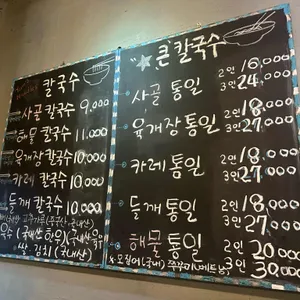 칼국수
사골 칼국수 9.000
해물 칼국수 11.000
육개장 칼국수 10.000
카레 칼국수 10.000
들깨 칼국수 10.000
고추가루(중국산, 국내산)
육수(국내산 한우)(국내산)
쌀, 김치(국내산)
★큰칼국수
사골 통일 2인 16,000
3인 24,000
육개장통일 2인 18,000
3인 27,000
카레 통일 2인 18,000
3인 27,000
들깨 통일 2인 18,000
3인 27,000
해물 통일 2인 20,000
3인 30,000